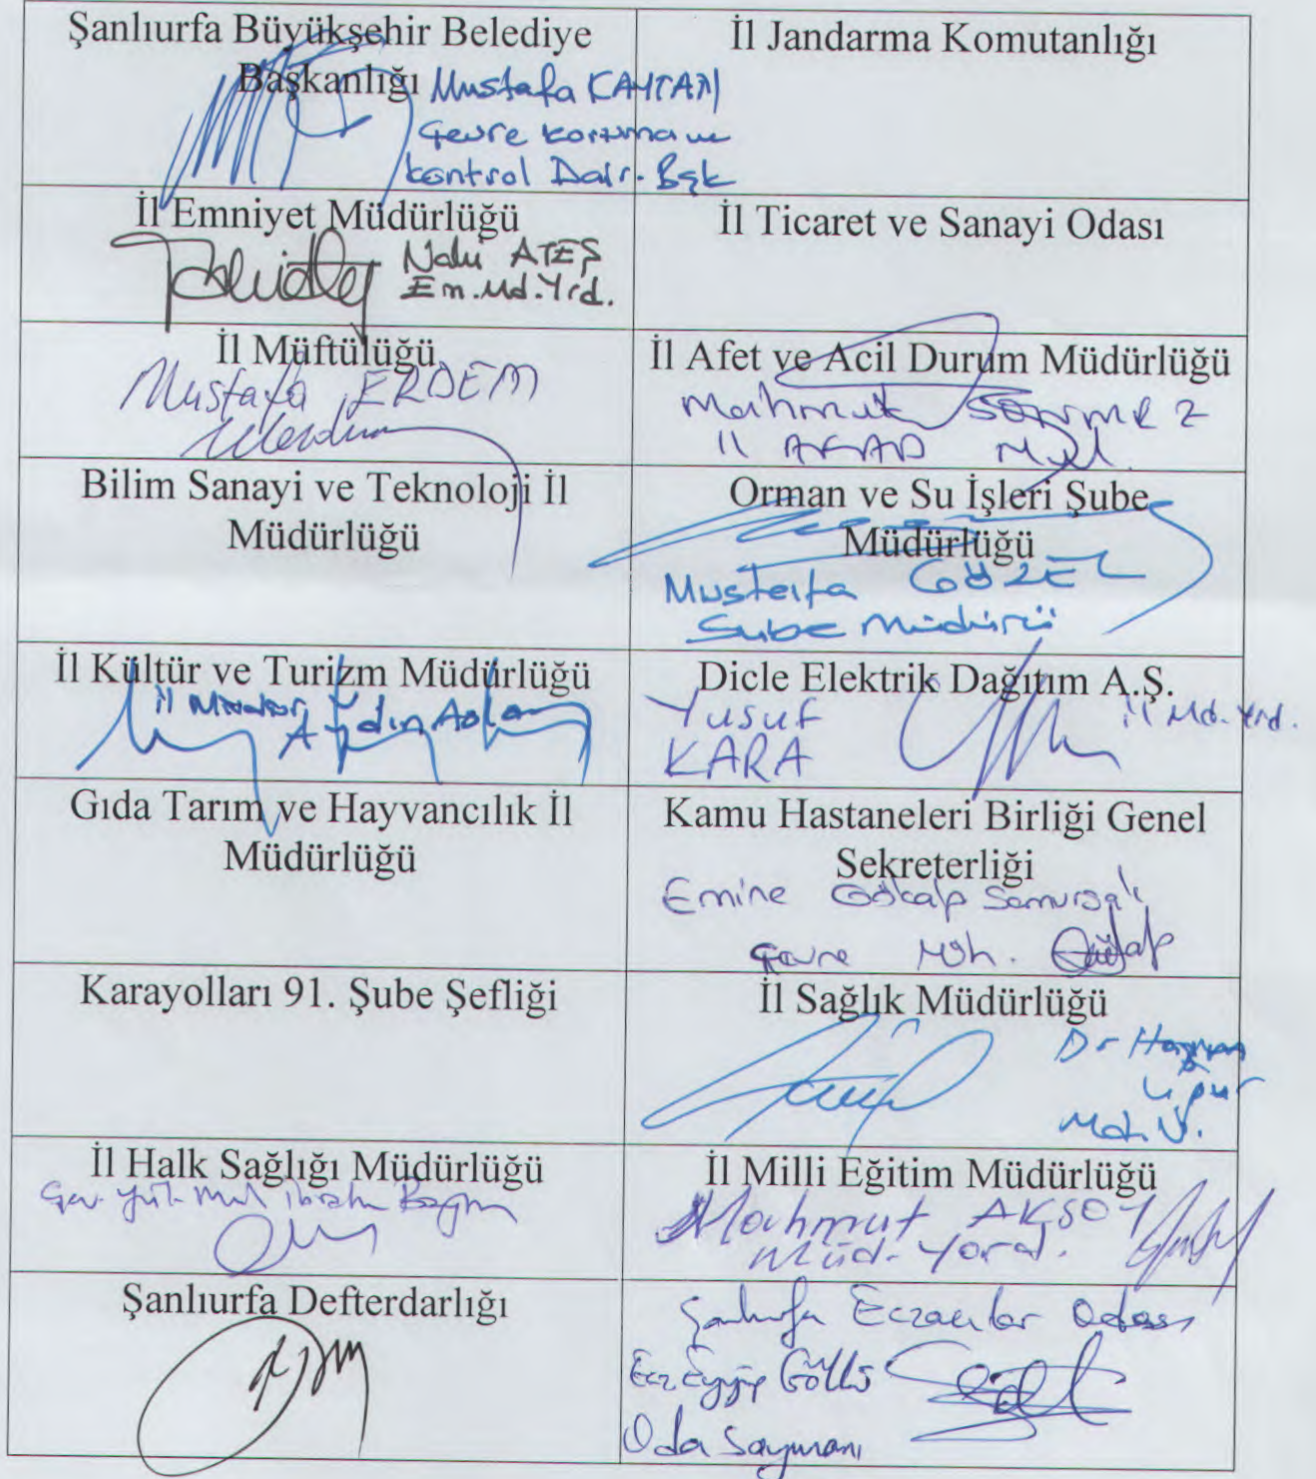 Şanlıurfa Büyükşehir Belediye
Başkanlığı Mustafa KAYTAN
Çevre koruma ve
kontrol Dair. Bşk
İl Jandarma Komutanlığı
İl Emniyet Müdürlüğü
ATEŞ
Em.Md.Yrd.
İl Ticaret ve Sanayi Odası
İl Müftülüğü
Mustafa ERDEM
İl Afet ve Acil Durum Müdürlüğü
Mahmut SÖNMEZ
İl AFAD Md.
Bilim Sanayi ve Teknoloji İl
Müdürlüğü
Orman ve Su İşleri Şube
Müdürlüğü
Mustafa GÖZEL
Şube Müdürü
İl Kültür ve Turizm Müdürlüğü
İl Müdürü
Aydın Aslan
Dicle Elektrik Dağıtım A.Ş.
Yusuf
KARA
İl Md. Yrd.
Gıda Tarım ve Hayvancılık İl
Müdürlüğü
Kamu Hastaneleri Birliği Genel
Sekreterliği
Emine Gökalp
Çevre Müh.
Karayolları 91. Şube Şefliği
İl Sağlık Müdürlüğü
Dr
Md. V.
İl Halk Sağlığı Müdürlüğü
İl Milli Eğitim Müdürlüğü
Mahmut AKSOY
Müd. Yard.
Şanlıurfa Defterdarlığı
Şanlıurfa Eczacılar Odası
Ecz Eyyüp Güllü
Oda Saymanı